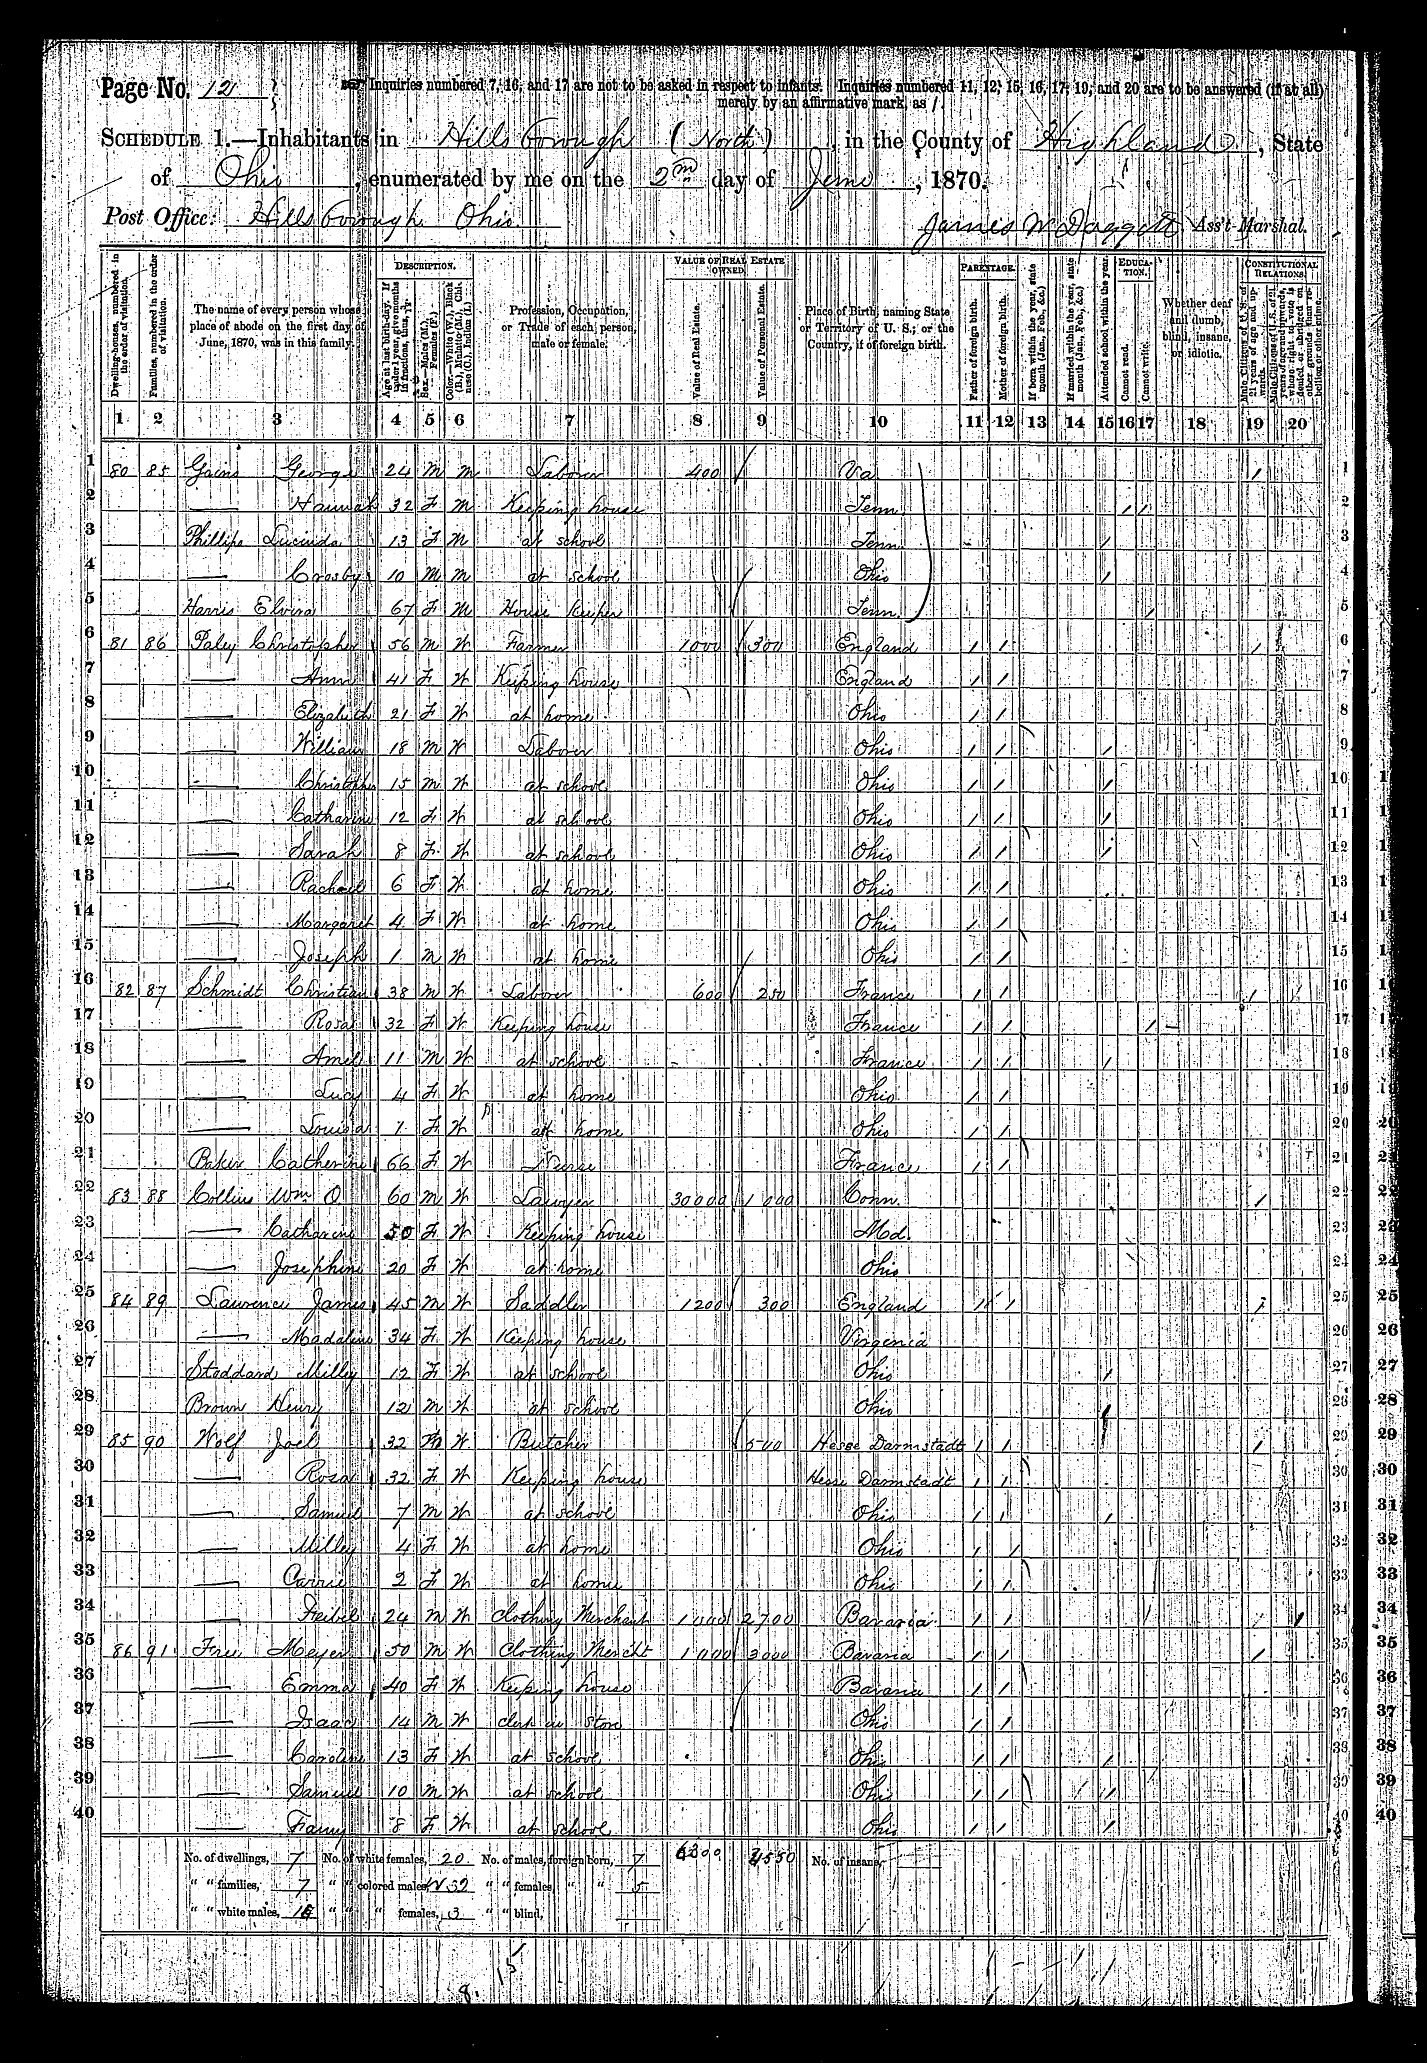 Page No. 12
Inquiries numbered 7, 16, and 17 are not to be asked in respect to infants. Inquiries numbered 11, 12, 15, 16, 17, 19, and 20 are to be answered (if at all)
merely by an affirmative mark, as /.
SCHEDULE 1.—Inhabitants in Hillsborough (North), in the County of Highland, State
of Ohio, enumerated by me on the 2nd day of June, 1870.
Post Office: Hillsborough Ohio. James W Doggett Ass't Marshal.
DESCRIPTION. VALUE OF REAL ESTATE OWNED. PARENTAGE. EDUCATION. CONSTITUTIONAL RELATIONS.
Dwelling-houses, numbered in the order of visitation.
Families, numbered in the order of visitation.
The name of every person whose place of abode on the first day of June, 1870, was in this family.
Age at last birth-day. If under 1 year, give months in fractions, thus
Sex.—Males (M.), Females (F.)
Color.—White (W.), Black (B.), Mulatto (M.), Chinese (C.), Indian (I.)
Profession, Occupation, or Trade of each person, male or female.
Value of Real Estate.
Value of Personal Estate.
Place of Birth, naming State or Territory of U. S.; or the Country, if of foreign birth.
Father of foreign birth.
Mother of foreign birth.
If born within the year, state month (Jan., Feb., &c.)
If married within the year, state month (Jan., Feb., &c.)
Attended school within the year.
Cannot read.
Cannot write.
Whether deaf and dumb, blind, insane, or idiotic.
Male Citizens of U. S. of 21 years of age and upwards.
Male Citizens of U. S. of 21 years of age and upwards, whose right to vote is denied or abridged on other grounds than rebellion or other crime.
1 2 3 4 5 6 7 8 9 10 11 12 13 14 15 16 17 18 19 20
1 80 85 Gains George 24 M M Laborer 400 Va / 1
2 — Hannah 32 F M Keeping house Tenn / / 2
3 Phillips Lucinda 13 F M at school Tenn / 3
4 — Crosby 10 M M at school Ohio / 4
5 Harris Elvira 67 F M House Keeper Tenn. / 5
6 81 86 Paley Christopher 56 M W Farmer 1000 300 England / / / 6
7 — Ann 41 F W Keeping house England / / 7
8 — Elizabeth 21 F W at home Ohio / / 8
9 — William 18 M W Laborer Ohio / / / 9
10 — Christopher 15 M W at school Ohio / / / 10
11 — Catharine 12 F W at school Ohio / / / 11
12 — Sarah 8 F W at school Ohio / / / 12
13 — Rachael 6 F W at home Ohio / / 13
14 — Margaret 4 F W at home Ohio / / 14
15 — Joseph 1 M W at home Ohio / / 15
16 82 87 Schmidt Christian 38 M W Laborer 600 250 France / / / 16
17 — Rosa 32 F W Keeping house France / / / 17
18 — Amel 11 M W at school France / / / 18
19 — Lucy 4 F W at home Ohio / / 19
20 — Louisa 1 F W at home Ohio / / 20
21 Baker Catherine 66 F W Nurse France / / 21
22 83 88 Collins Wm O 60 M W Lawyer 30000 1000 Conn. / 22
23 — Catharine 50 F W Keeping house Md. 23
24 — Josephine 20 F W at home Ohio 24
25 84 89 Laurence James 45 M W Saddler 1200 300 England / / / 25
26 — Madaline 34 F W Keeping house Virginia 26
27 Stoddard Milley 12 F W at school Ohio / 27
28 Brown Henry 12 M W at school Ohio / 28
29 85 90 Wolf Joel 32 M W Butcher 500 Hesse Darmstadt / / / 29
30 — Rosa 32 F W Keeping house Hesse Darmstadt / / 30
31 — Samuel 7 M W at school Ohio / / / 31
32 — Milley 4 F W at home Ohio / / 32
33 — Carrie 2 F W at home Ohio / / 33
34 — Feibel 24 M W Clothing Merchant 1000 2700 Bavaria / / / 34
35 86 91 Free Meyer 50 M W Clothing Mercht 1000 3000 Bavaria / / / 35
36 — Emma 40 F W Keeping house Bavaria / / 36
37 — Isaac 14 M W Clerk in Store Ohio / / 37
38 — Caroline 13 F W at school Ohio / / / 38
39 — Samuel 10 M W at school Ohio / / / 39
40 — Fanny 8 F W at school Ohio / / / 40
No. of dwellings, 7 No. of white females, 20 No. of males, foreign born, 7 No. of insane,
" " families, 7 " " colored males, 2 " " females, " " 5
" " white males, 15 " " " females, 3 " " blind,